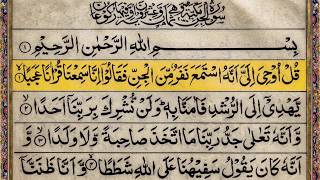 سورة الجن مكية وهي
بِسْمِ اللهِ الرَّحْمٰنِ الرَّحِيْمِ
قُلْ اُوْحِيَ اِلَيَّ اَنَّهُ اسْتَمَعَ نَفَرٌ مِّنَ الْجِنِّ فَقَالُوْٓا اِنَّا سَمِعْنَا قُرْاٰنًا عَجَبًا ۙ۱
يَّهْدِيْٓ اِلَى الرُّشْدِ فَاٰمَنَّا بِهٖ ؕ وَلَنْ نُّشْرِكَ بِرَبِّنَآ اَحَدًا ۙ۲
وَّاَنَّهٗ تَعٰلٰى جَدُّ رَبِّنَا مَا اتَّخَذَ صَاحِبَةً وَّلَا وَلَدًا ۙ۳ وَّ
اَنَّهٗ كَانَ يَقُوْلُ سَفِيْهُنَا عَلَى اللهِ شَطَطًا ۙ۴ وَّاَنَّا ظَنَنَّآ